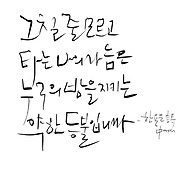 그칠줄모르고
타는 나의 가슴은
누구의 밤을 지키는
약한 등불입니까 -한용운